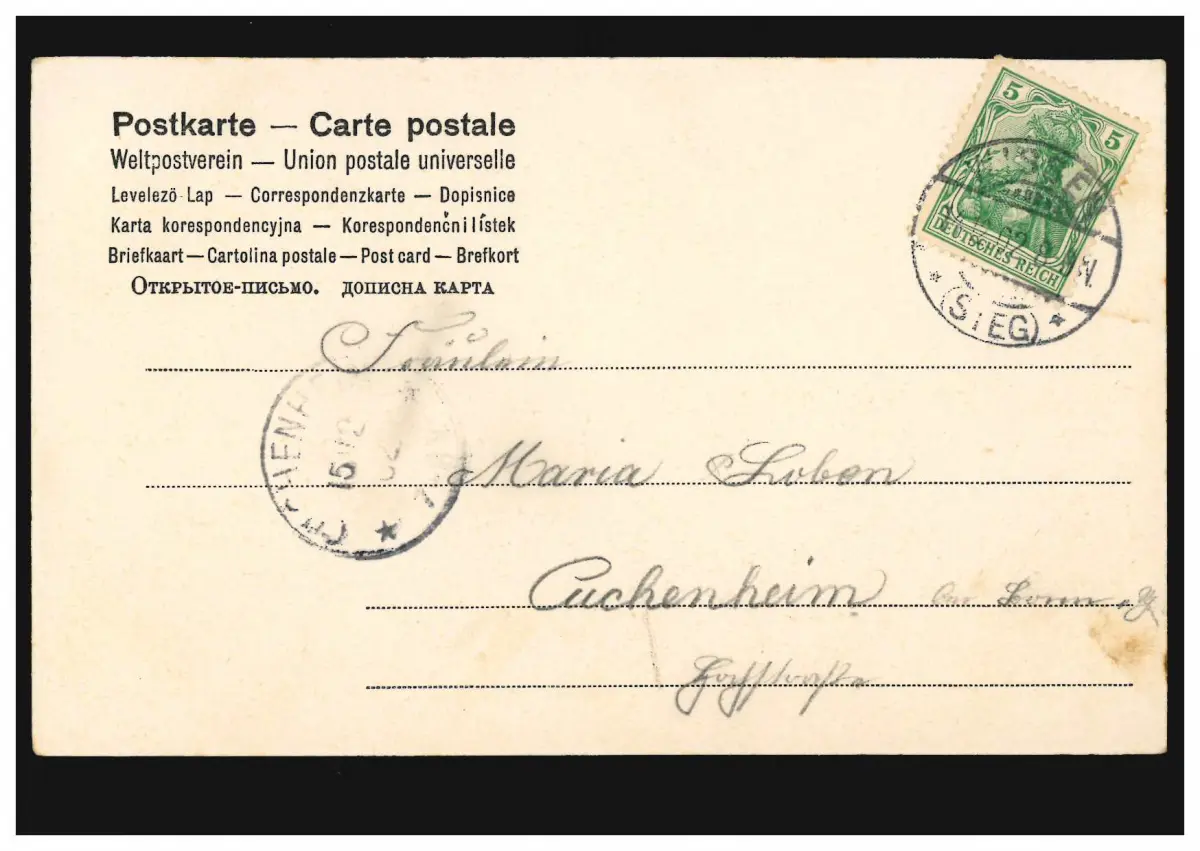 Postkarte — Carte postale
Weltpostverein — Union postale universelle
Levelezö-Lap — Correspondenzkarte — Dopisnice
Karta korespondencyjna — Korespondenčni lístek
Briefkaart — Cartolina postale — Post card — Brefkort
Открытое-письмо. дописна карта
5 5
DEUTSCHES REICH
* (SIEG) *
Fräulein
Maria Loben
Cuchenheim Bonn
Hochstraße